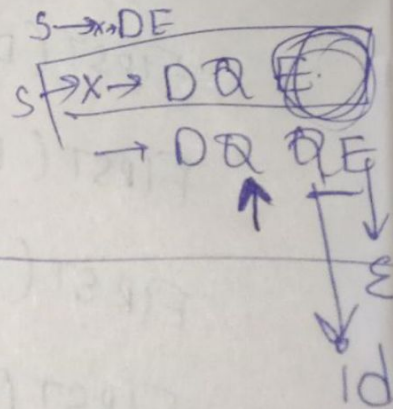 S→x→DE
S→x→ D Q E
→ D Q Q E
ε
id